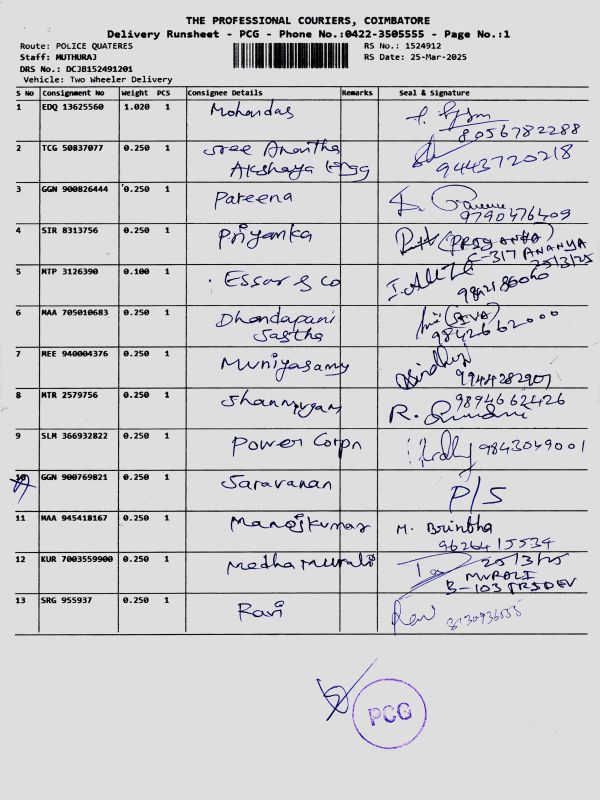 THE PROFESSIONAL COURIERS, COIMBATORE
Delivery Runsheet - PCG - Phone No.:0422-3505555 - Page No.:1
Route: POLICE QUATERES
RS No.: 1524912
Staff: MUTHURAJ
RS Date: 25-Mar-2025
DRS No.: DCJB152491201
Vehicle: Two Wheeler Delivery
S No Consignment No Weight PCS Consignee Details Remarks Seal & Signature
1 EDQ 13625560 1.020 1 Mohandas
8056782288
2 TCG 50837077 0.250 1 Sree Anantha
Akshaya
9443720218
3 GGN 900826444 0.250 1 Pateena
9790476409
4 SIR 8313756 0.250 1 Priyanka (PRIYANKA)
C-317 ANANYA
25/3/25
5 MTP 3126390 0.100 1 Essar & Co
6 MAA 705010683 0.250 1 Dhandapani
Sastha
(SIVA)
9842662000
7 MEE 940004376 0.250 1 Muniyasamy
8 MTR 2579756 0.250 1 Shanmugam
9894662426
9 SLM 366932822 0.250 1 Power Corpn 9843049001
10 GGN 900769821 0.250 1 Saravanan P/S
11 MAA 945418167 0.250 1 Manojkumar M. Brintha
9626415534
12 KUR 7003559900 0.250 1 Medha Murali 25/3/25
MURALI
B-103
13 SRG 955937 0.250 1 Ravi
PCG